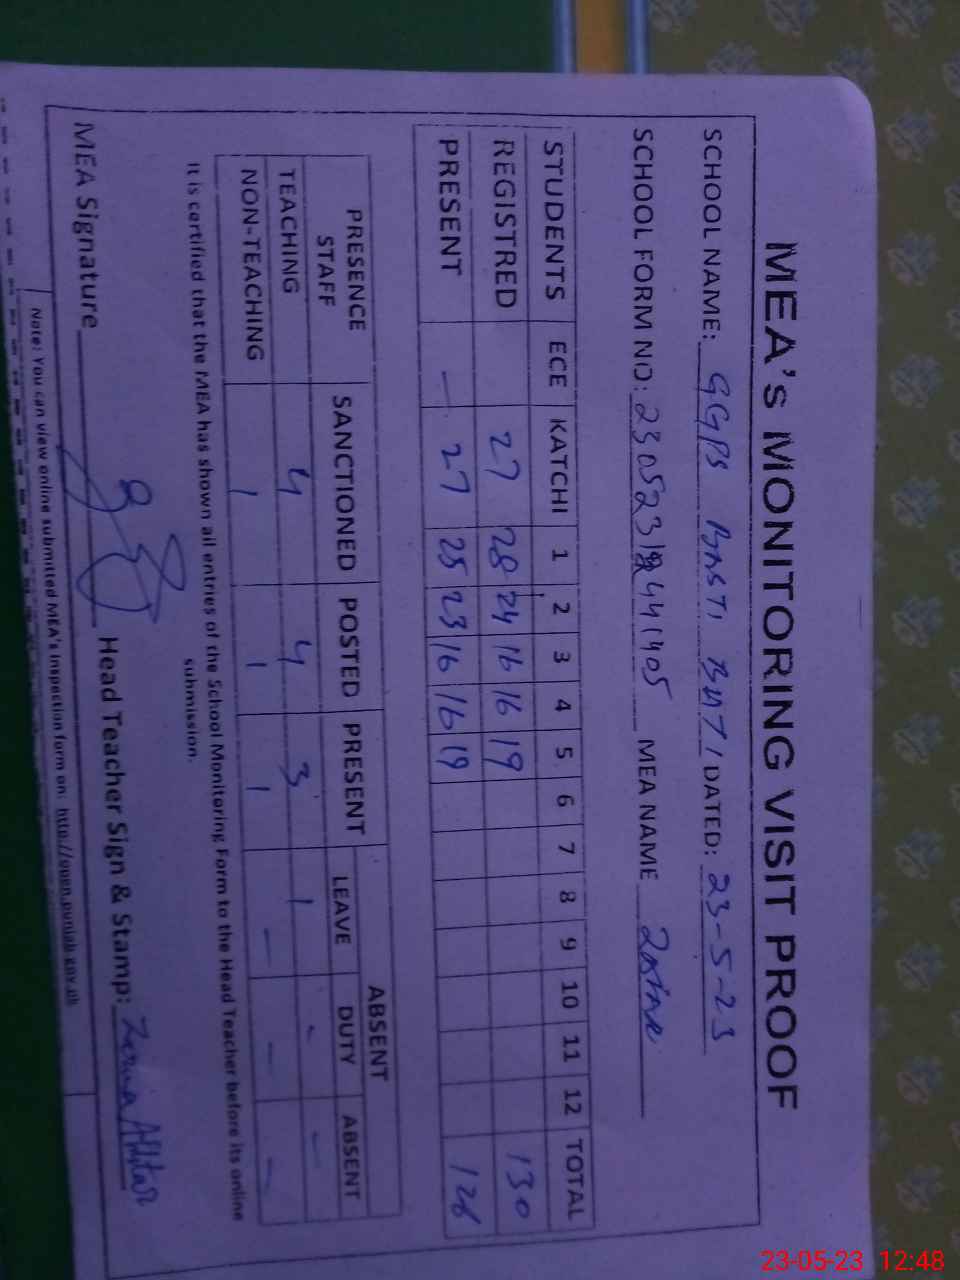 MEA's MONITORING VISIT PROOF
SCHOOL NAME: GGPS BASTI BUTI DATED: 23-5-23
SCHOOL FORM NO: MEA NAME
STUDENTS ECE KATCHI 1 2 3 4 5 6 7 8 9 10 11 12 TOTAL
REGISTRED 27 28 24 16 16 19 130
PRESENT — 27 25 23 16 16 19
PRESENCE STAFF SANCTIONED POSTED PRESENT ABSENT
LEAVE DUTY ABSENT
TEACHING 4 4 3 1 - -
NON-TEACHING 1 1 1 - - -
It is certified that the MEA has shown all entries of the School Monitoring Form to the Head Teacher before its online
submission.
MEA Signature Head Teacher Sign & Stamp:
Note: You can view online submitted MEA's inspection form on: http://open.punjab.gov.pk
23-05-23 12:48